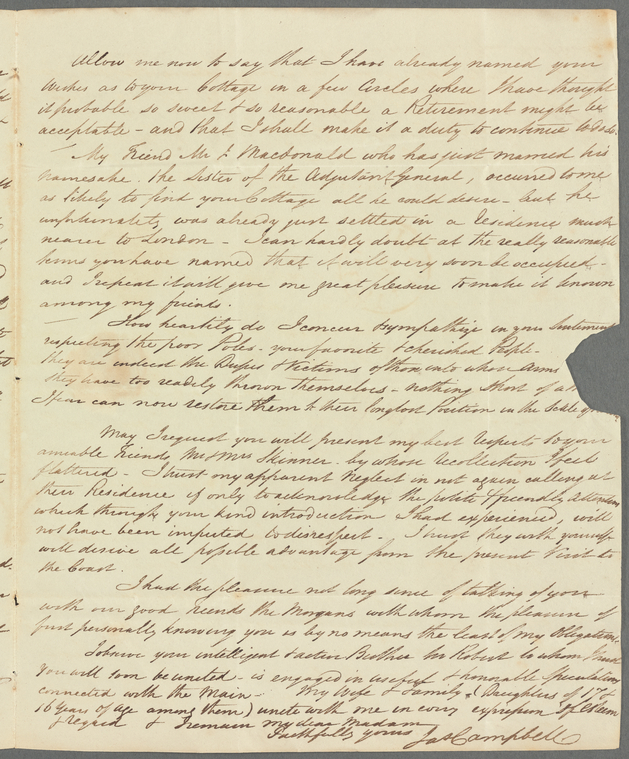 Allow me now to say that I have already named your
wishes as to your Cottage in a few Circles where I have thought
it probable so sweet & so reasonable a Retirement might be
acceptable – and that I shall make it a duty to continue to do so.
My Friend Mr J Macdonald who has just married his
namesake, the Sister of the Adjutant General, occurred to me
as likely to find your Cottage all he could desire – but he
unfortunately was already just settled in a Residence much
nearer to London – I can hardly doubt at the really reasonable
terms you have named that it will very soon be occupied –
and I repeat it will give me great pleasure to make it known
among my friends.
How heartily do I concur & sympathize in your Sentiments
respecting the poor Poles – your favorite & cherished People –
they are indeed the Dupes & Victims of those into whose Arms
they have too readily thrown themselves – nothing short of a
I fear can now restore them to their long lost Position in the Scale of
May I request you will present my best respects to your
amiable friends Mr & Mrs Skinner – by whose recollection I feel
flattered – I trust my apparent Neglect in not again calling at
their Residence if only to acknowledge the polite & friendly attentions
which through your kind introduction I had experienced, will
not have been imputed to disrespect – I trust they with yourself
will derive all possible advantage from the present Visit to
the Coast.
I had the pleasure not long since of talking of you
with our good friends the Morgans with whom the pleasure of
first personally knowing you is by no means the least of my Obligations.
I observe your intelligent & active Brother Sir Robert to whom I trust
you will soon be united – is engaged in useful & honorable Speculations
connected with the Main – My Wife & Family (Daughters of 17 &
16 years of age among them) unite with me in every expression of Esteem
& regard & I remain my dear Madam
faithfully yours Jas Campbell